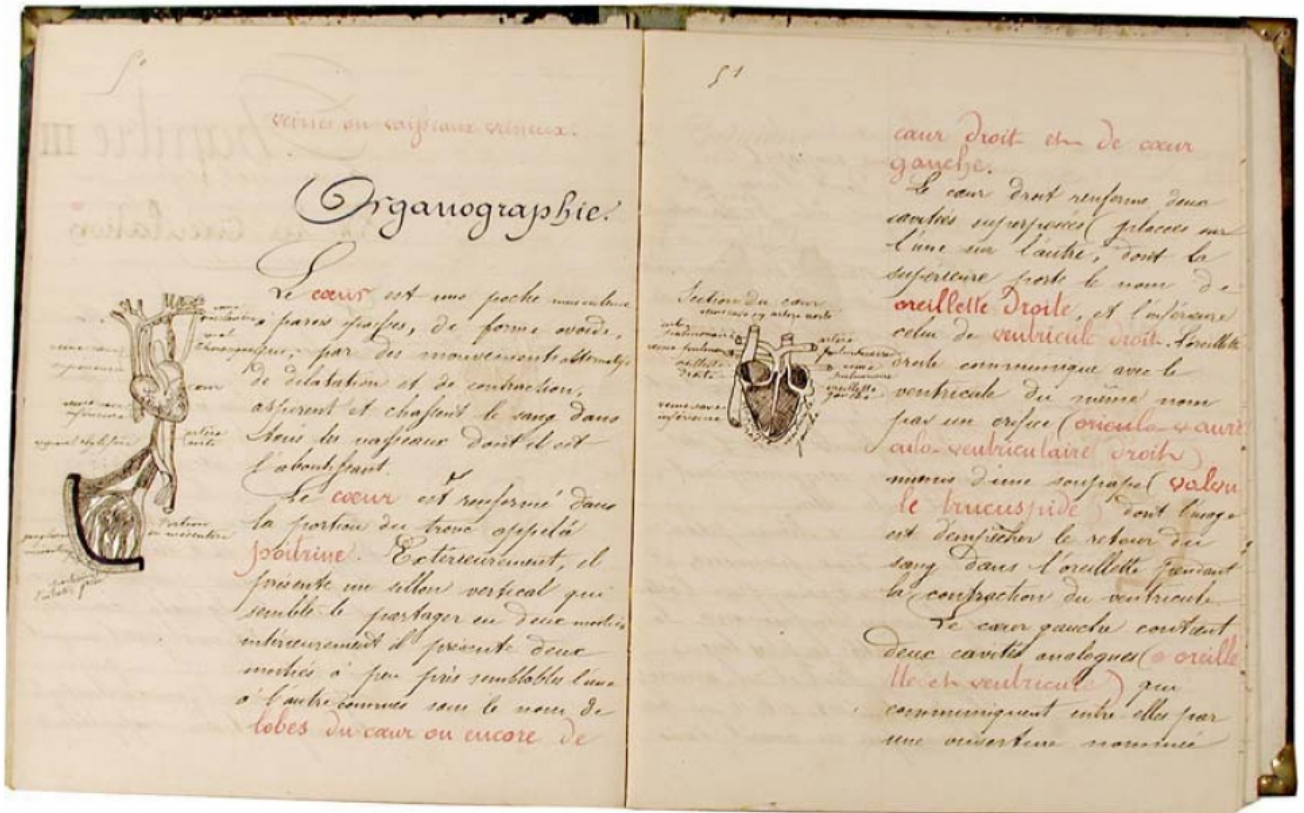 50
veines ou vaisseaux veineux.
Organographie.
Le cœur est une poche musculeuse
à parois épaisses, de forme ovoïde,
que, par des mouvements alternatifs
de dilatation et de contraction,
aspirent et chassent le sang dans
tous les vaisseaux dont il est
l'aboutissant.
Le cœur est renfermé dans
la portion du tronc appelé
poitrine. Extérieurement, il
présente un sillon vertical qui
semble le partager en deux moitiés
intérieurement il présente deux
moitiés à peu près semblables l'une
à l'autre connues sous le nom de
lobes du cœur ou encore de
cœur
artère
aorte
51
Section du cœur
artère
pulmonaire
oreillette
droite
veine cave
inférieure
artère
pulmonaire
oreillette
gauche
cœur droit et de cœur
gauche.
Le cœur droit renferme deux
cavités superposées (placées sur
l'une sur l'autre, dont la
supérieure porte le nom de
oreillette droite, et l'inférieure
celui de ventricule droit. L'oreillette
droite communique avec le
ventricule du même nom
par un orifice (
culo-ventriculaire droit)
munis d'une soupape (valvu
le trucuspide) dont l'usage
est d'empêcher le retour du
sang dans l'oreillette pendant
la contraction du ventricule.
Le cœur gauche contient
deux cavités analogues (oreille
tte et ventricule) qui
communiquent entre elles par
une ouverture nommée